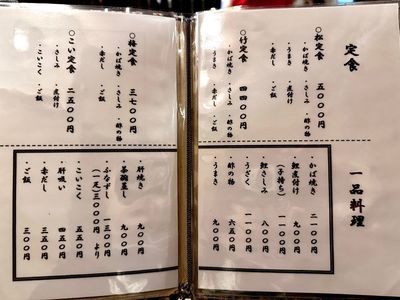 定食
○松定食 五〇〇〇円
・かば焼き ・さしみ ・酢の物
・うまき ・皮付け
・赤だし ・ご飯
○竹定食 四四〇〇円
・かば焼き ・さしみ ・酢の物
・うまき ・赤だし ・ご飯
○梅定食 三七〇〇円
・かば焼き ・さしみ ・酢の物
・赤だし ・ご飯
○こい定食 二五〇〇円
・さしみ ・皮付け
・こいこく ・ご飯
一品料理
・かば焼き 二一〇〇円
・鯉皮付け 九〇〇円
(子持ち) 一一〇〇円
・鯉さしみ 八〇〇円
・うざく 一一〇〇円
・酢の物 六五〇円
・うまき 九〇〇円
・肝焼き 九〇〇円
・茶碗蒸し 九〇〇円
・ふなずし 一三〇〇円
(一匹)三〇〇〇円より
・こいこく 五五〇円
・肝吸い 四〇〇円
・赤だし 三五〇円
・ご飯 三〇〇円